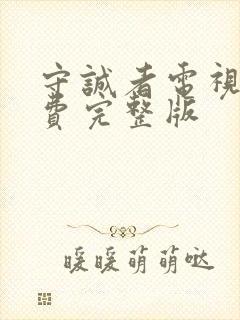 守誠者電視
費完整版
暖暖萌萌哒